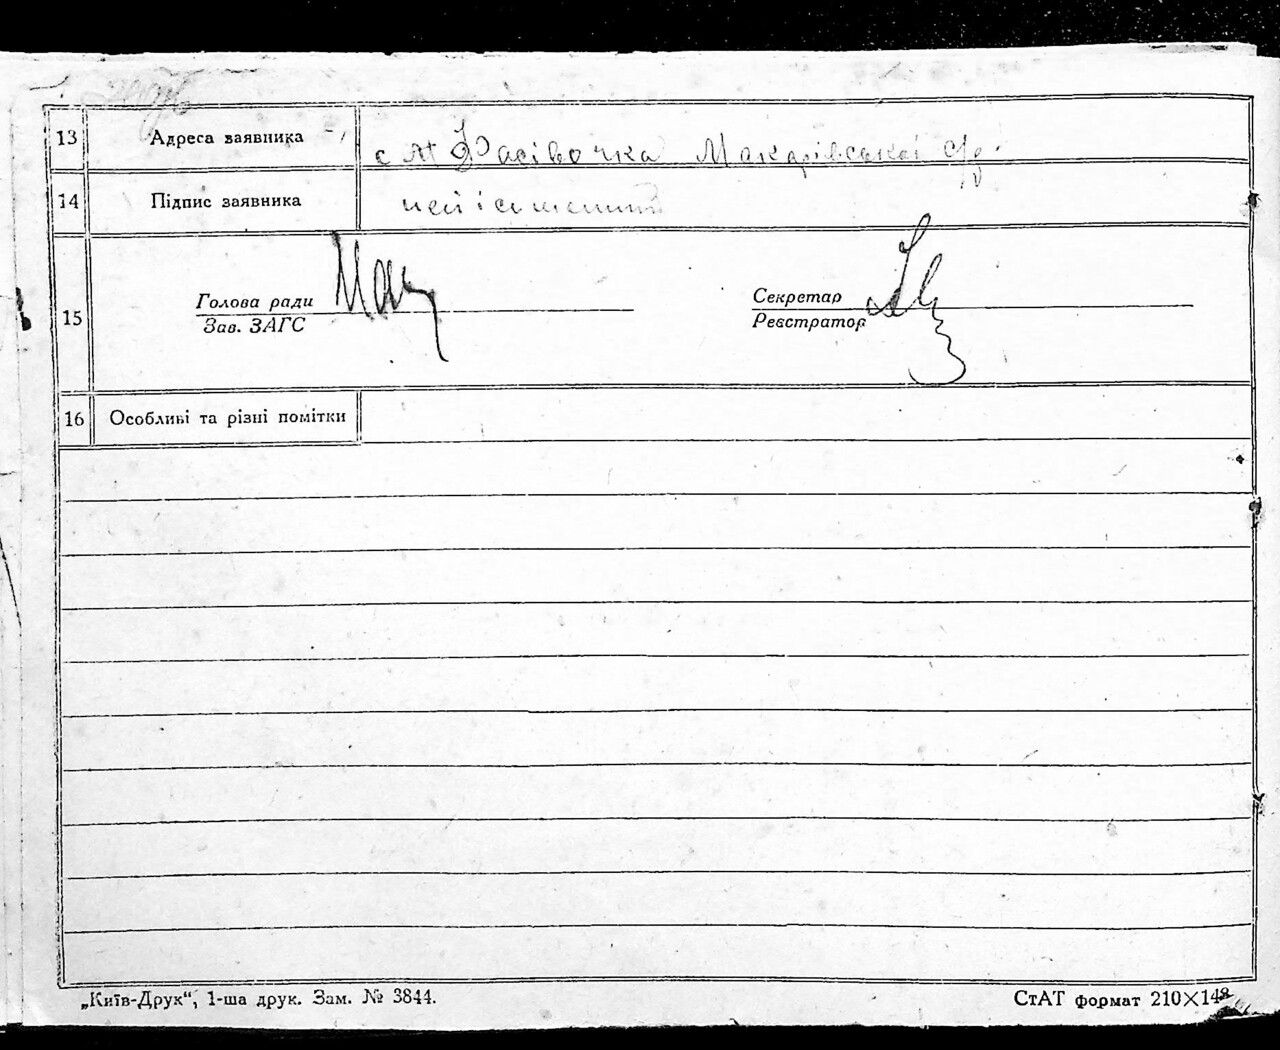 13 Адреса заявника с М Фасівочка Макарівської с/р
14 Підпис заявника неписьменний
15 Голова ради
Зав. ЗАГС
Секретар
Реєстратор
16 Особливі та різні помітки
„Київ-Друк“, 1-ша друк. Зам. № 3844.
СтАТ формат 210×148